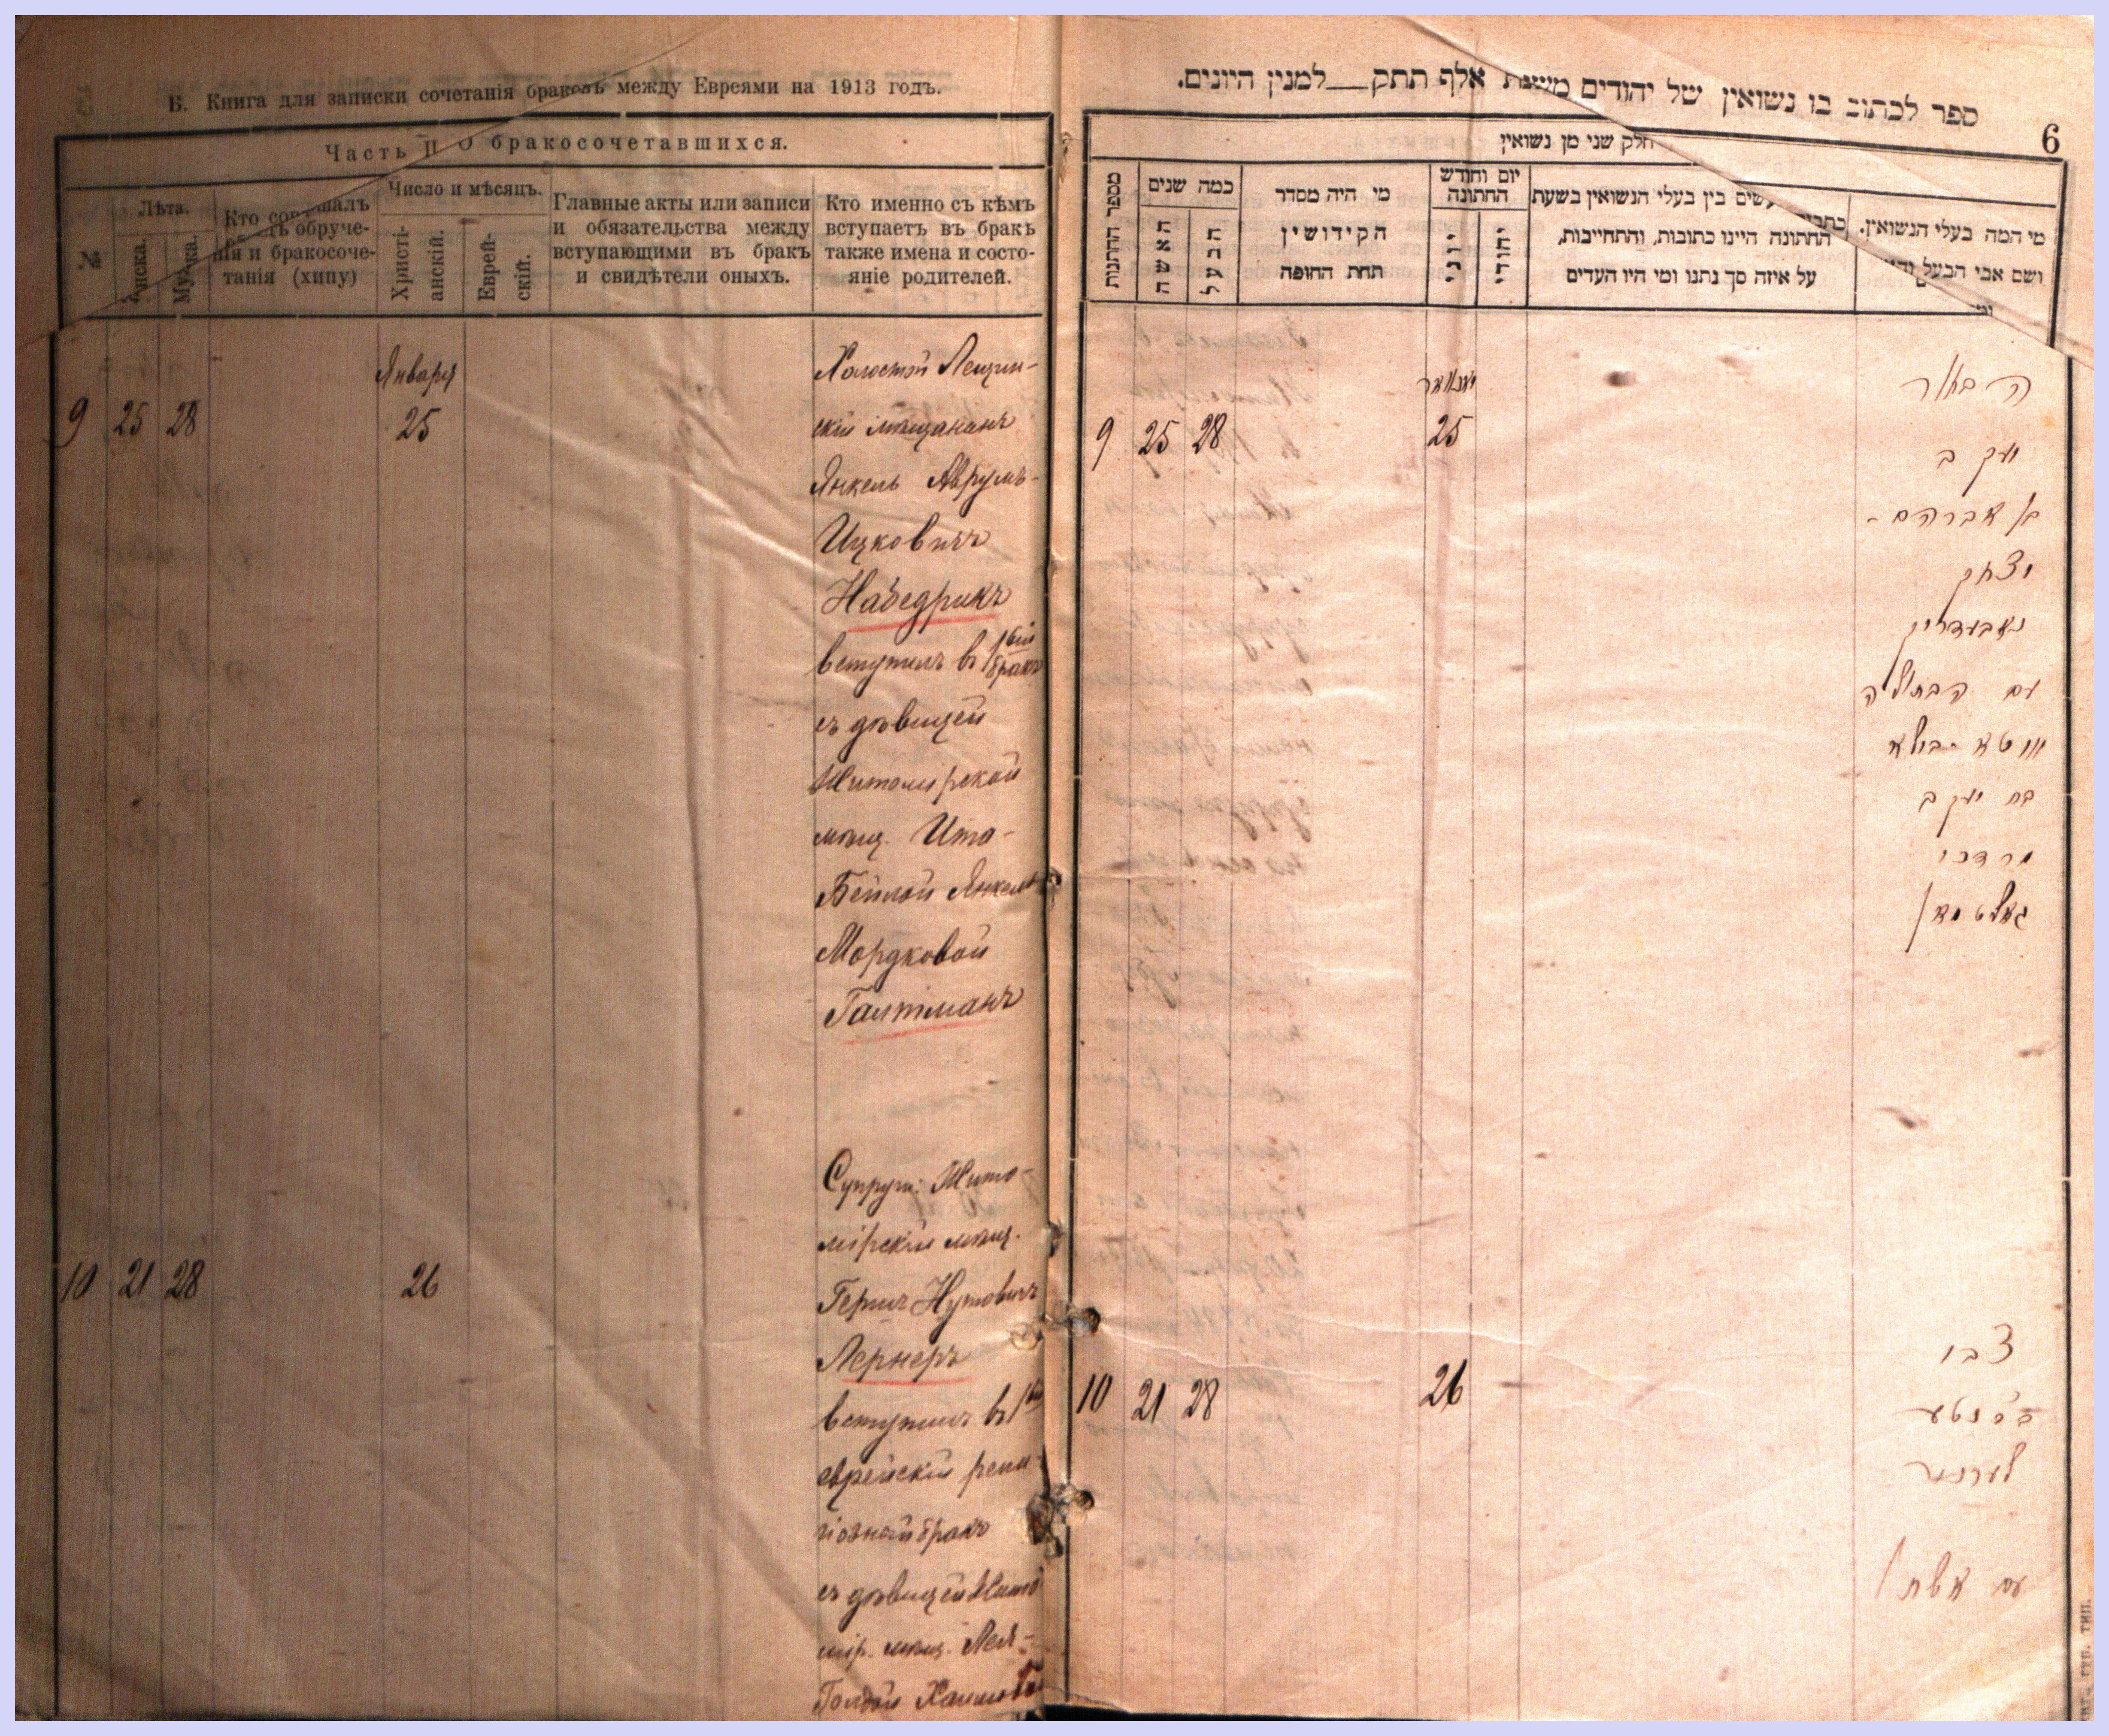 Б. Книга для записки сочетанія браковъ между Евреями на 1913 годъ.
Часть II О бракосочетавшихся.
№
Лѣта.
Мужа.
Кто
обруче-
нія и бракосоче-
танія (хипу)
Число и мѣсяцъ.
Христі-
анскій.
Еврей-
скій.
Главные акты или записи
и обязательства между
вступающими въ бракъ
и свидѣтели оныхъ.
Кто именно съ кѣмъ
вступаетъ въ бракъ
также имена и состо-
яніе родителей.
Января
9 25 28 25
Холостой
скій мѣщанинъ
Янкель Аврумъ-
Ицковичъ
Набедрикъ
вступилъ въ 1вый бракъ
съ дѣвицей
Житомирской
мѣщ. Ита-
Бейлой Янкель
Мордковой
Галтманъ
10 21 28 26
Супруги: Жито-
мірскій мѣщ.
Гершъ Нутовичъ
Лернеръ
вступилъ въ 1вый
еврейскій рели-
гіозный бракъ
съ дѣвицей Жито
мір. мѣщ. Лея-
Голдой
ספר לכתוב בו נשואין של יהודים משנת אלף תתק__למנין היונים.
6
חלק שני מן נשואין
מספר החתנות
כמה שנים
האשה
הבעל
מי היה מסדר
הקידושין
תחת החופה
יום וחודש
החתונה
יוני
יהודי
עשים בין בעלי הנשואין בשעת
החתונה היינו כתובות, והתחייבות,
על איזה סך נתנו ומי היו העדים
מי המה בעלי הנשואין.
ושם אבי הבעל
יאנואר
9 25 28 25
הבחור
יעקב
בן אברהם-
יצחק
נאבעדריק
עם הבתולה
איטא ביילא
בת יעקב
מרדכי
גאלטמאן
10 21 28 26
צבי
לערנער
עם אשתו